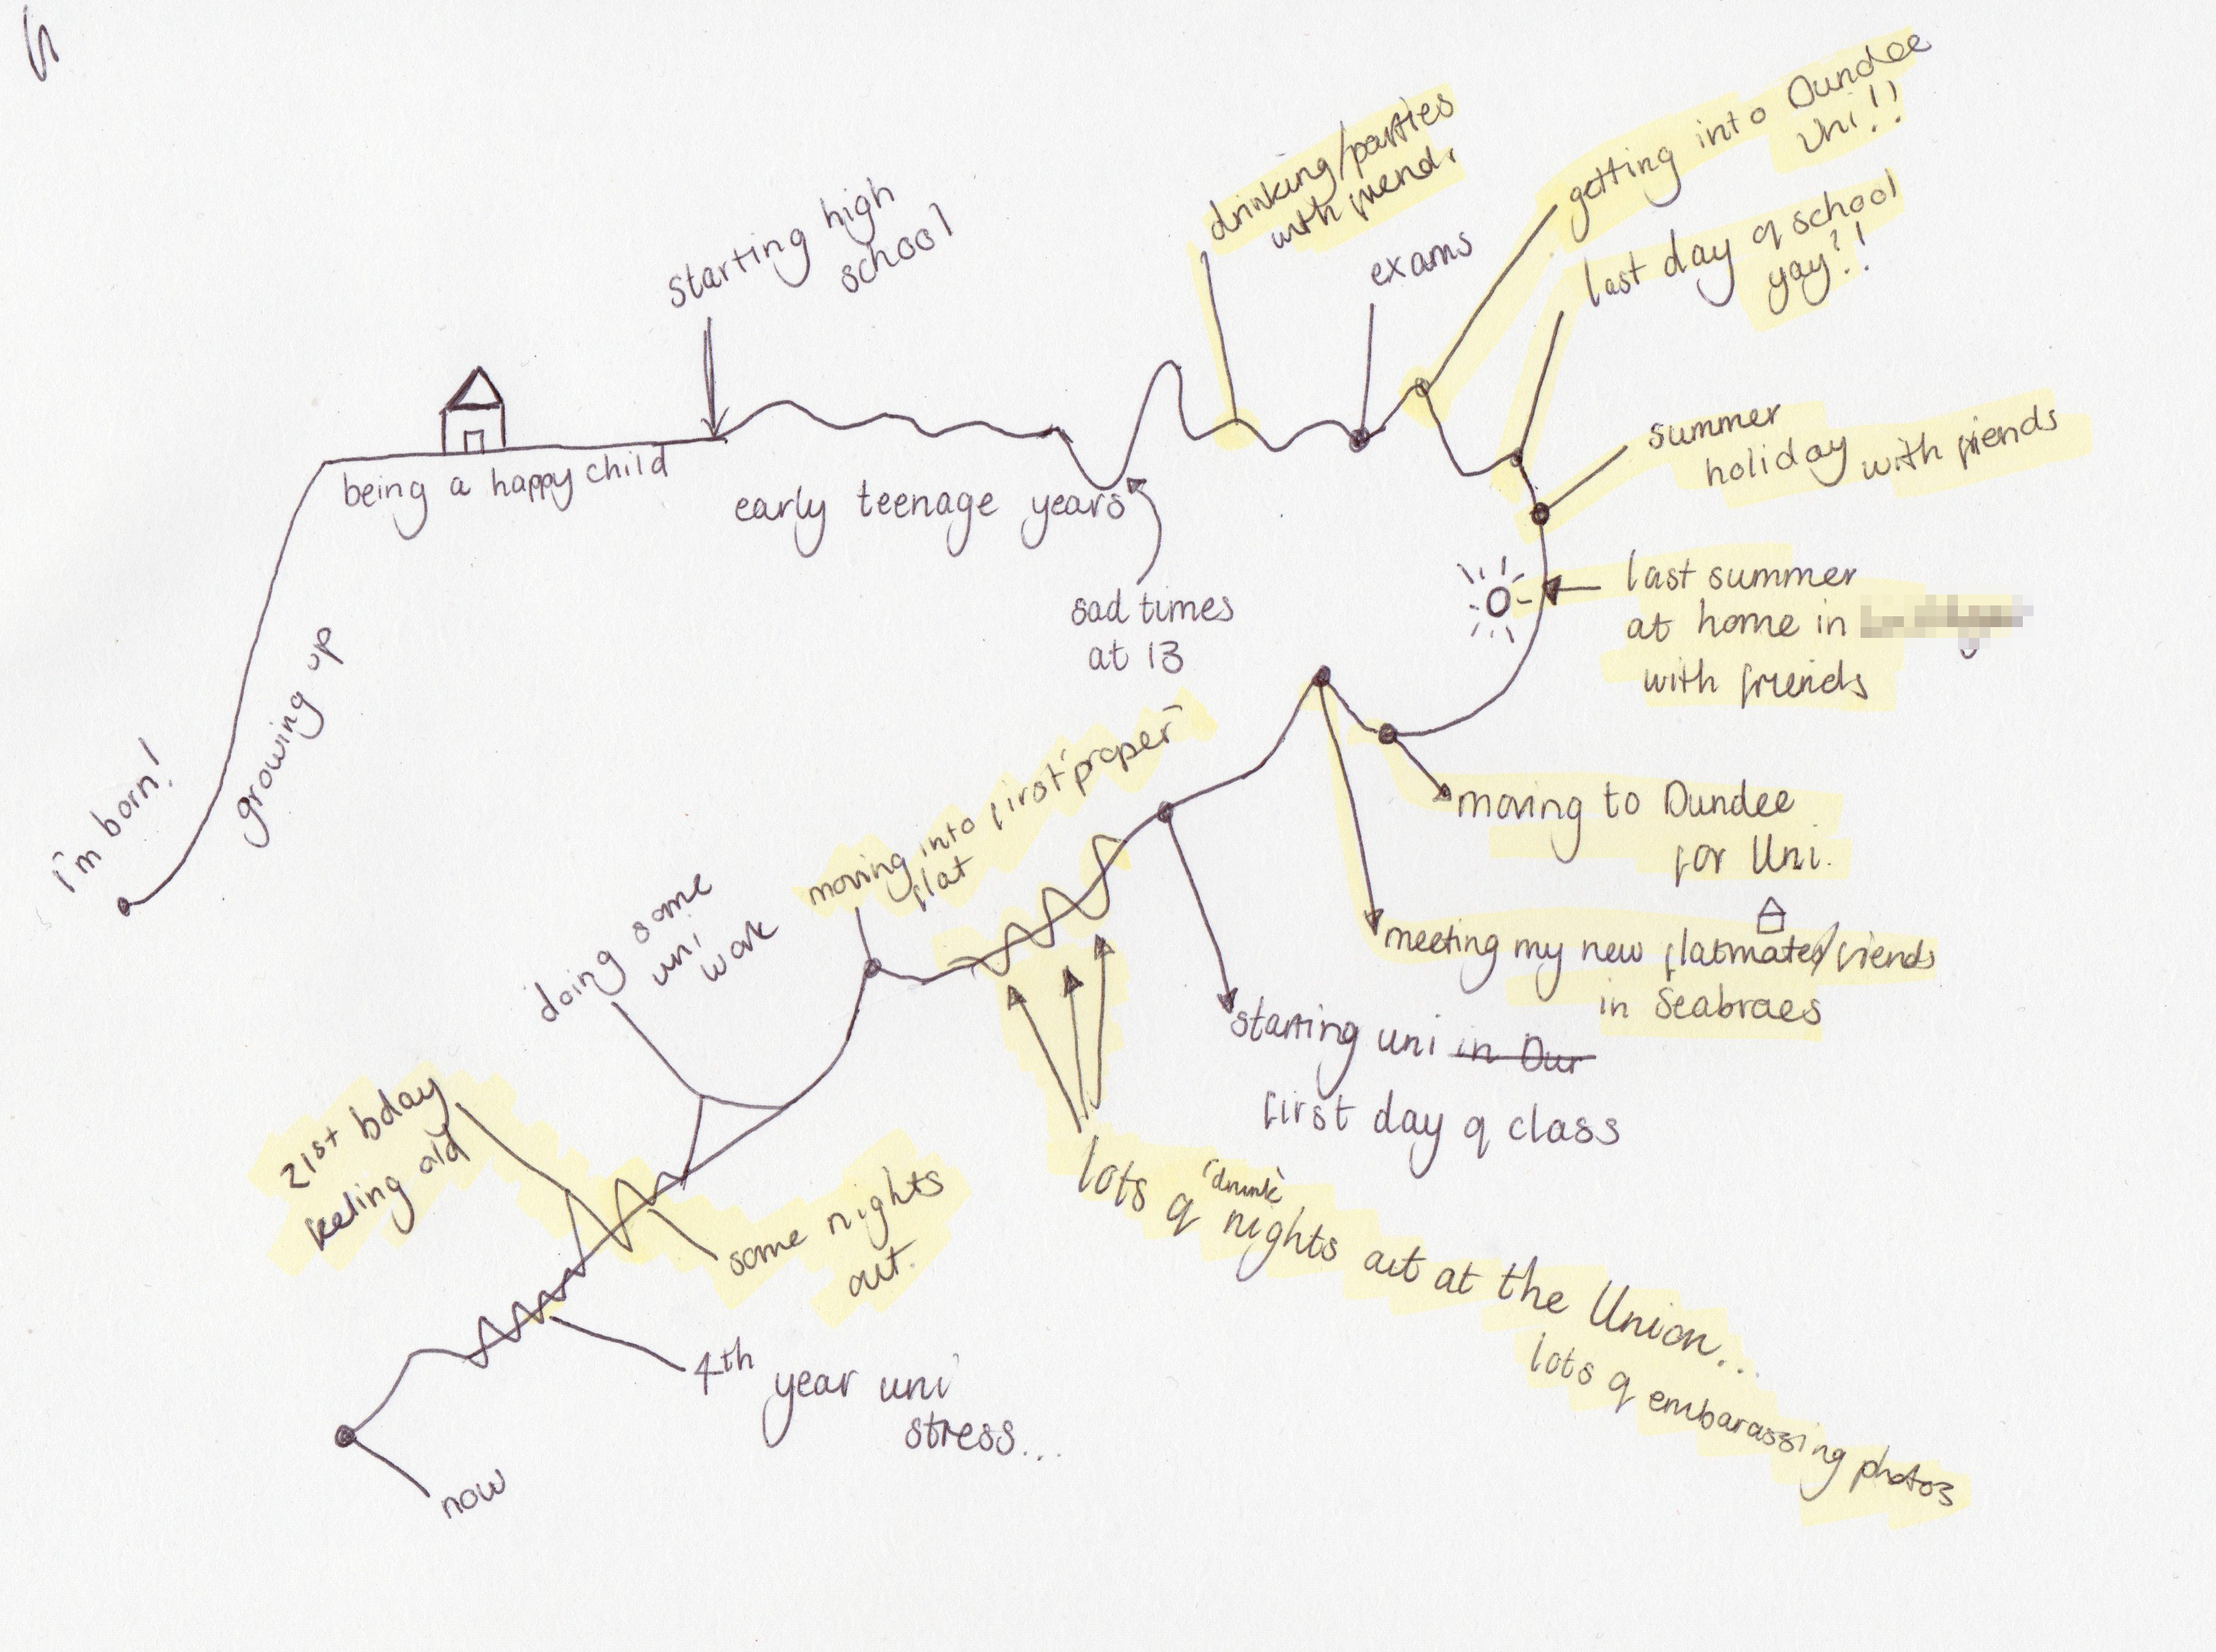 i'm born!
growing up
being a happy child
starting high
school
early teenage years
sad times
at 13
drinking/parties
with friends
exams
getting into Dundee
Uni!!
last day of school
yay?!
summer
holiday with friends
last summer
at home in
with friends
moving to Dundee
for Uni.
meeting my new flatmates/friends
in Seabraes
starting uni in Dur
first day of class
lots of 'drunk' nights out at the Union...
lots of embarassing photos
moving into first 'proper'
flat
doing some
uni
work
some nights
out.
21st bday
feeling old
4th year uni
stress...
now